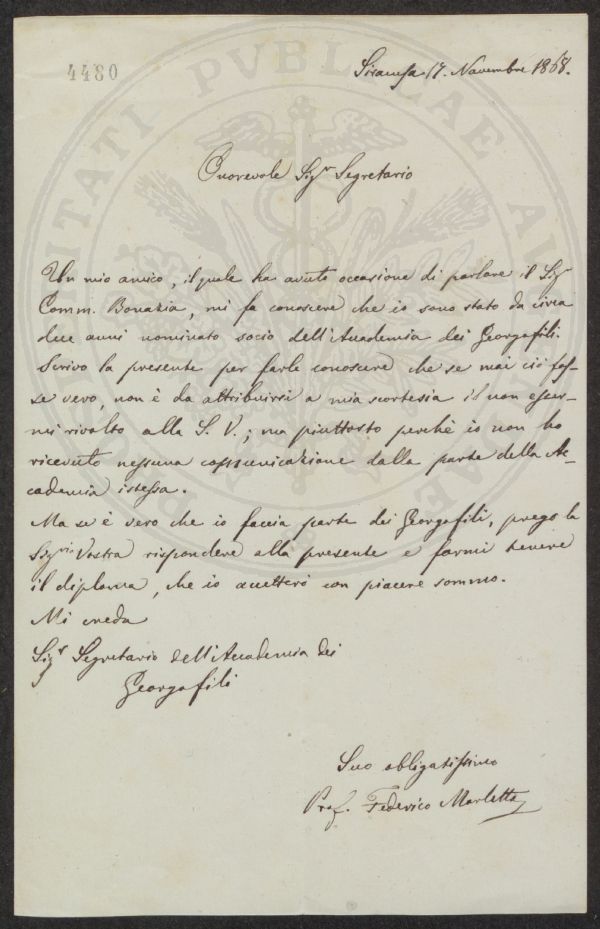 4480
Siracusa 17. Novembre 1868.
Onorevole Sigr Segretario
Un mio amico, il quale ha avuto occasione di parlare il Sigr
Comm. Bonazia, mi fa conoscere che io sono stato da circa
due anni nominato socio dell'Accademia dei Georgofili.
Scrivo la presente per farle conoscere che se mai ciò fos-
se vero, non è da attribuirsi a mia scortesia il non esser-
mi rivolto alla S. V.; ma piuttosto perchè io non ho
ricevuto nessuna comunicazione dalla parte della Ac-
cademia istessa.
Ma se è vero che io faccia parte dei Georgofili, prego la
Sigria Vostra rispondere alla presente e farmi tenere
il diploma, che io accetterò con piacere sommo.
Mi creda
Sigr Segretario dell'Accademia dei
Georgofili
Suo obligatissimo
Prof. Federico Marletta
PUBLICAE